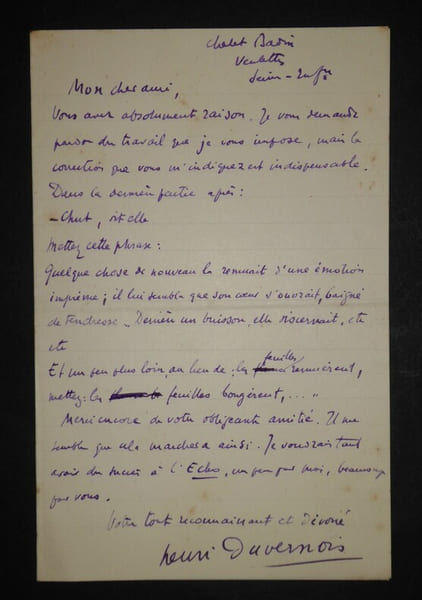 Chalet Badin
Veulettes
Seine-Infre
Mon cher ami,
Vous avez absolument raison. Je vous demande
pardon du travail que je vous impose, mais la
correction que vous m'indiquez est indispensable.
Dans la dernière partie après :
- Chut, dit-elle
Mettez cette phrase :
Quelque chose de nouveau la remuait d'une émotion
imprévue ; il lui sembla que son cœur s'ouvrait, baigné
de tendresse.. Derrière un buisson, elle discernait, etc
etc
Et un peu plus loin au lieu de : les feuilles remuèrent,
mettez : les feuilles bougèrent, ... "
Merci encore de votre obligeante amitié. Il me
semble que cela marchera ainsi. Je voudrais tant
avoir du succès à l'Echo, un peu pour moi, beaucoup
pour vous.
Votre tout reconnaissant et dévoué
Henri Duvernois